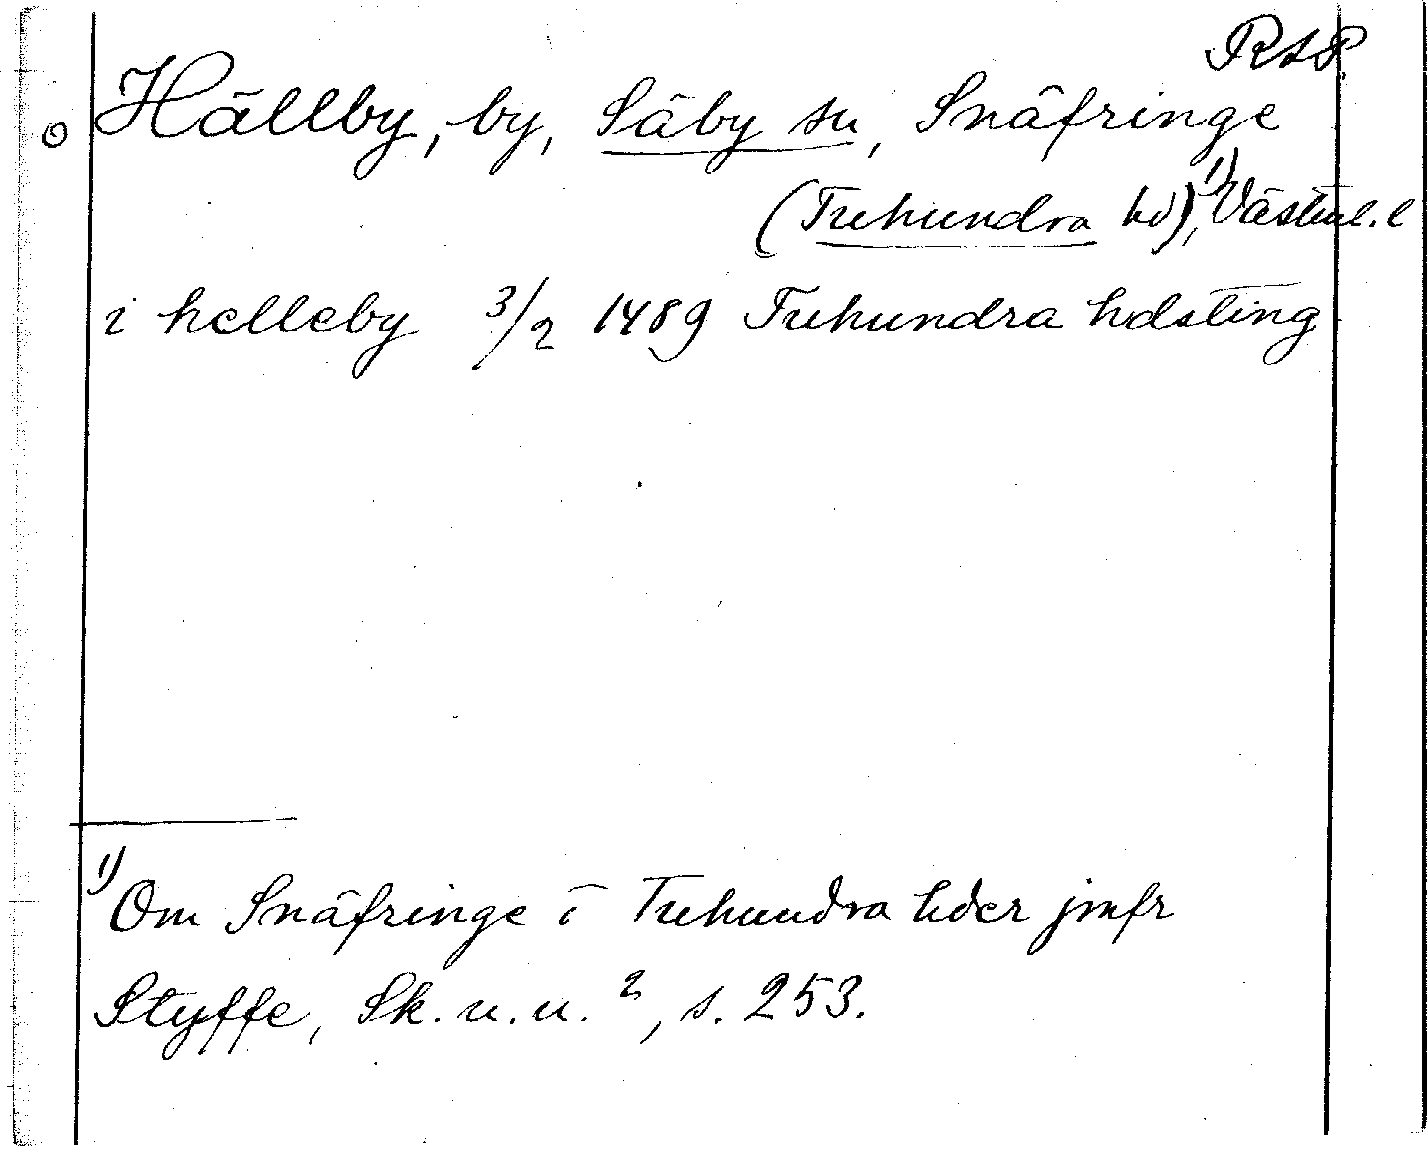 RAP.
o Hällby, by, Säby sn, Snäfringe
(Tuhundra hd),¹⁾ Västml. l
i helleby 3/2 1489 Tuhundra hdsting
¹⁾ Om Snäfringe i Tuhundra hder jmfr
Styffe, Sk. u. u. ², s. 253.